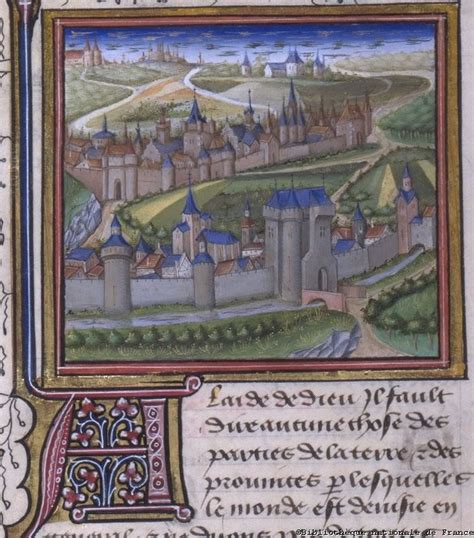 A laide de dieu Il fault
dire aucune chose des
parties de la terre & des
prouinces p lesquelles
le monde est deuise en
©Bibliothèque nationale de France